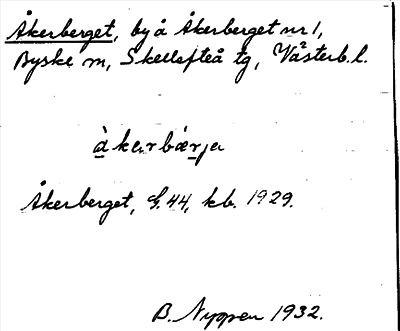 Åkerberget, by å Åkerberget nr 1,
Byske sn, Skellefteå tg, Västerb. l.
à̱karbæ̀rja
Åkerberget, G. 44, kb. 1929.
B. Nygren 1932.